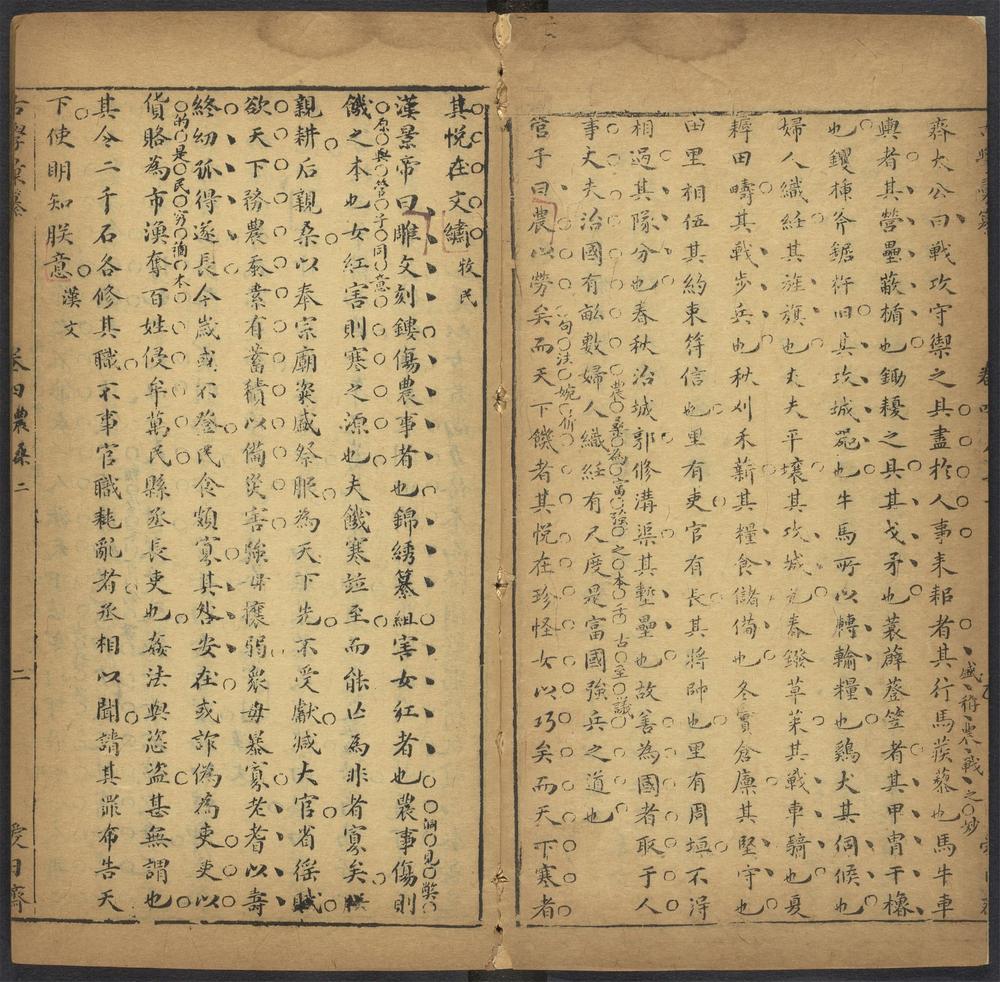 齊太公曰戰攻守禦之具盡於人事耒耜者其行馬蒺藜也馬牛車
盛稱農戰之妙
輿者其營壘蔽楯也鋤耰之具其戈矛也蓑薜簦笠者其甲冑干櫓
也钁棟斧鋸杵臼其攻城噐也牛馬所以轉輸糧也鷄犬其伺候也
婦人織絍其旌旗也丈夫平壤其攻城也春鏺草萊其戰車騎也夏
耨田疇其戰步兵也秋刈禾薪其糧食儲備也冬實倉廩其堅守也
田里相伍其約束符信也里有吏官有長其將帥也里有周垣不淂
相過其隊分也春秋治城郭修溝渠其塹壘也故善為國者取于人
事丈夫治國有畝數婦人織絍有尺度是富國強兵之道也
農桑為富強之本千古至議
句法婉斫
管子曰農以勞矣而天下饑者其悅在珍怪女以巧矣而天下寒者
其悅在文繡 牧民
漢景帝曰雕文刻鏤傷農事者也錦绣纂組害女紅者也農事傷則
洞見獘
原與管子同意
饑之本也女紅害則寒之源也夫饑寒竝至而能亾為非者寡矣朕
親耕后親桑以奉宗廟粢盛祭服為天下先不受獻減大官省徭賦
欲天下務農蚕素有蓄積以備災害強毋攘弱眾毋暴寡老耆以壽
終幼孤得遂長今歲或不登民食頗寡其咎安在或詐偽為吏吏以
的是民窮滴本
貨賂為市漁奪百姓侵牟萬民縣丞長吏也姦法與盜盜甚無謂也
其令二千石各修其職不事官職耗亂者丞相以聞請其罪布告天
下使明知朕意 漢文
卷四農桑 二
二
愛日齋